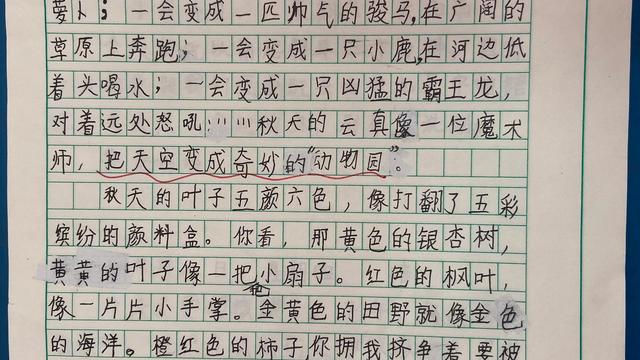 萝卜；一会变成一匹帅气的骏马,在广阔的
草原上奔跑；一会变成一只小鹿,在河边低
着头喝水；一会变成一只凶猛的霸王龙，
对着远处怒吼……秋天的云真像一位魔术
师，把天空变成奇妙的“动物园”。
秋天的叶子五颜六色，像打翻了五彩
缤纷的颜料盒。你看，那黄色的银杏树，
黄黄的叶子像一把把小扇子。红色的枫叶，
像一片片小手掌。金黄色的田野就像金色
的海洋。橙红色的柿子,你拥我挤争着要被